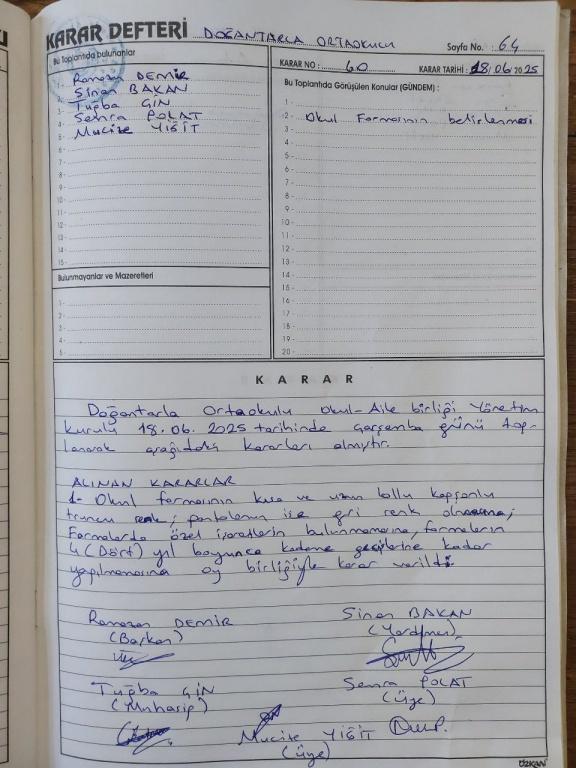 KARAR DEFTERİ DOĞANTARLA ORTAOKULU Sayfa No. : 64
Bu Toplantıda bulunanlar
1- Ramazan DEMİR
2- Sinan BAKAN
3- Tuğba GİN
4- Semra POLAT
5- Mucize YİĞİT
6-
7-
8-
9-
10-
11-
12-
13-
14-
15-
Bulunmayanlar ve Mazeretleri
1-
2-
3-
4-
5-
KARAR NO : 60 KARAR TARİHİ : 18/06/2025
Bu Toplantıda Görüşülen Konular (GÜNDEM) :
1-
2- Okul Formasının belirlenmesi
3-
4-
5-
6-
7-
8-
9-
10-
11-
12-
13-
14-
15-
16-
17-
18-
19-
20-
KARAR
Doğantarla Ortaokulu Okul-Aile birliği Yönetim
kurulu 18.06.2025 tarihinde Çarşamba günü top-
lanarak aşağıdaki kararları almıştır.
ALINAN KARARLAR
1- Okul formasının kısa ve uzun kollu kapşonlu
turuncu renk, pantolonun ise gri renk olmasına,
Formalarda özel işaretlerin bulunmamasına, formaların
4 (Dört) yıl boyunca kademe geçişlerine kadar
yapılmamasına oy birliğiyle karar verildi.
Ramazan DEMİR
(Başkan)
Sinan BAKAN
(Yardımcı)
Tuğba GİN
(Muhasip)
Semra POLAT
(Üye)
Mucize YİĞİT
(Üye)
ÖZKAN